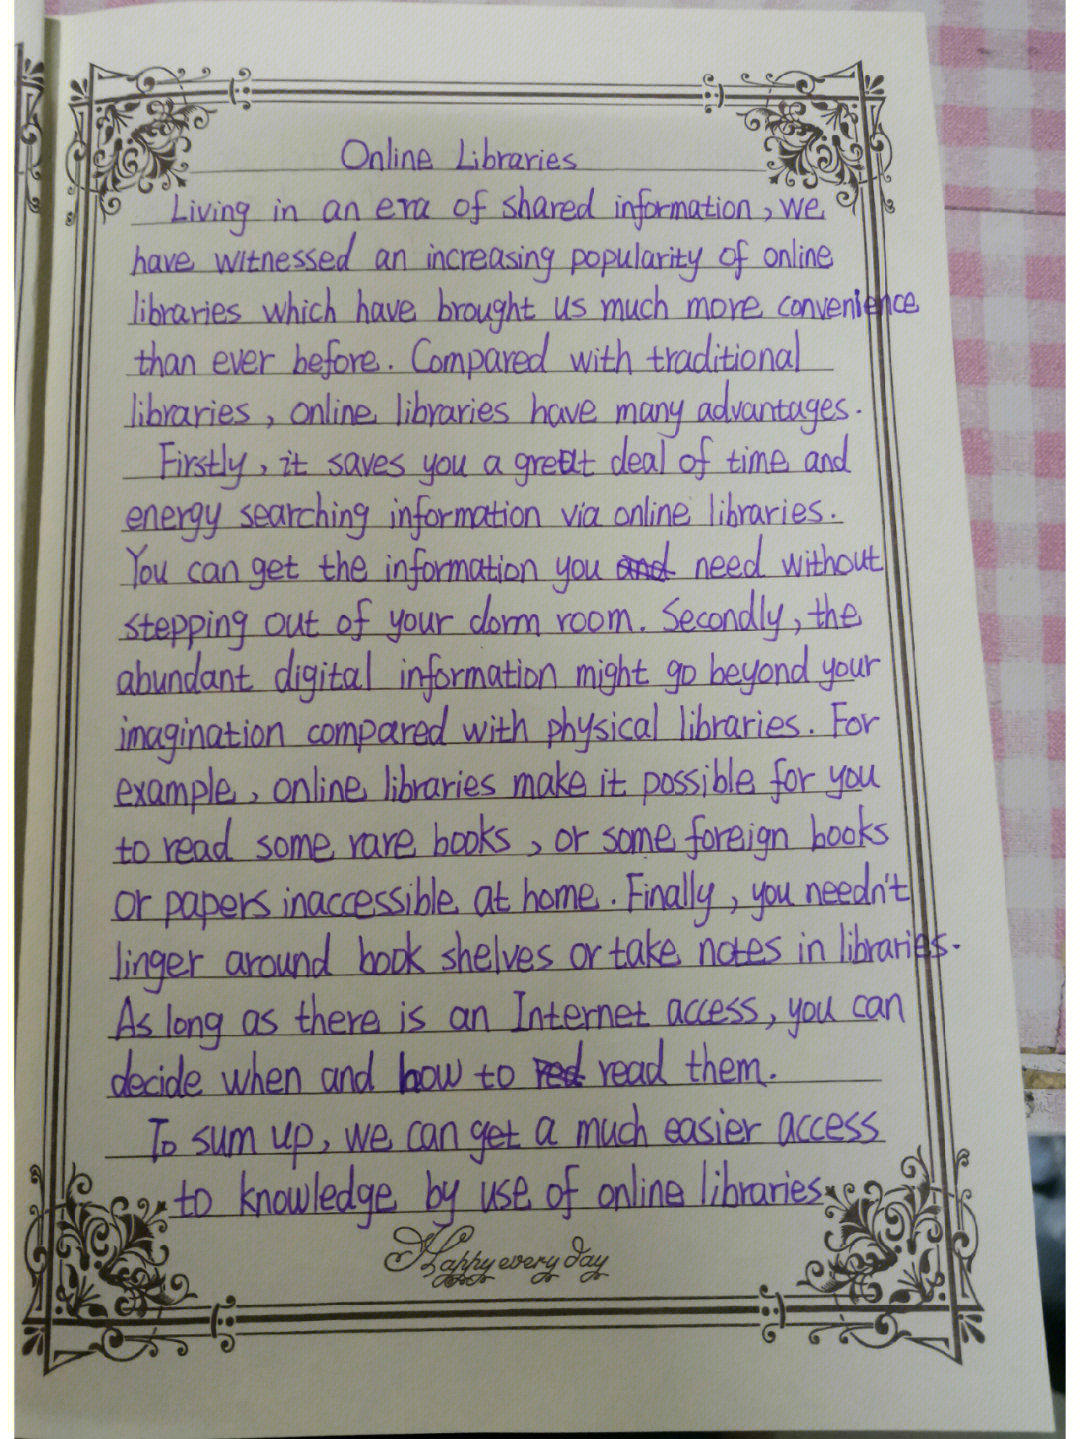 Online Libraries
Living in an era of shared information, we
have witnessed an increasing popularity of online
libraries which have brought us much more convenience
than ever before. Compared with traditional
libraries, online libraries have many advantages.
Firstly, it saves you a great deal of time and
energy searching information via online libraries.
You can get the information you and need without
stepping out of your dorm room. Secondly, the
abundant digital information might go beyond your
imagination compared with physical libraries. For
example, online libraries make it possible for you
to read some rare books, or some foreign books
or papers inaccessible at home. Finally, you needn't
linger around book shelves or take notes in libraries.
As long as there is an Internet access, you can
decide when and how to red read them.
To sum up, we can get a much easier access
to knowledge by use of online libraries.
Happy every day